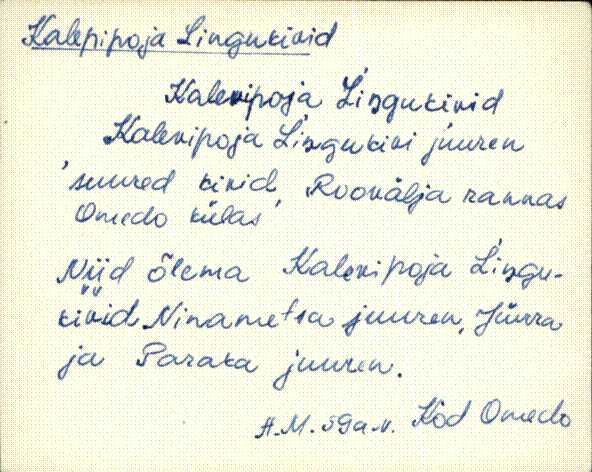 Kalepipoja Lingukivid
Kalevipoja Lingukivid
Kalevipoja Lingukivi juuren
'suured kivid' Roovälja rannas
Omedo külas
Niid õlema Kalevipoja Lingu-
kivid Ninametsa juuren, Jüvra
ja Paraka juuren.
A.M. 59 a.v. Kod Omedo